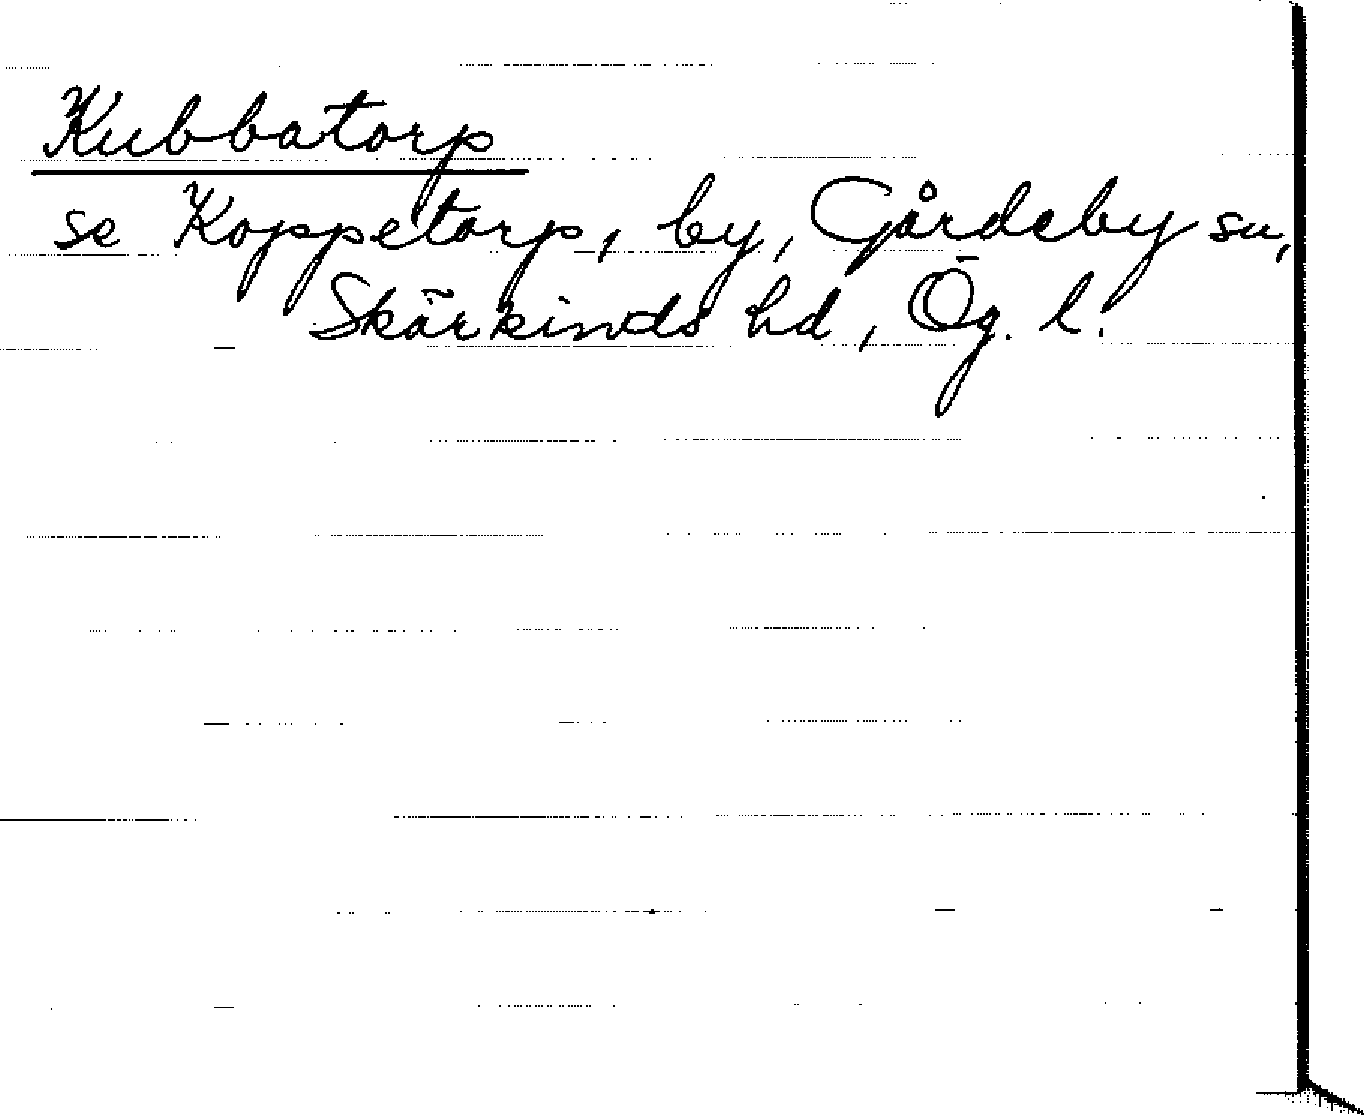 Kubbatorp
se Koppetorp, by, Gårdeby sn,
Skärkinds hd, Ög. l.